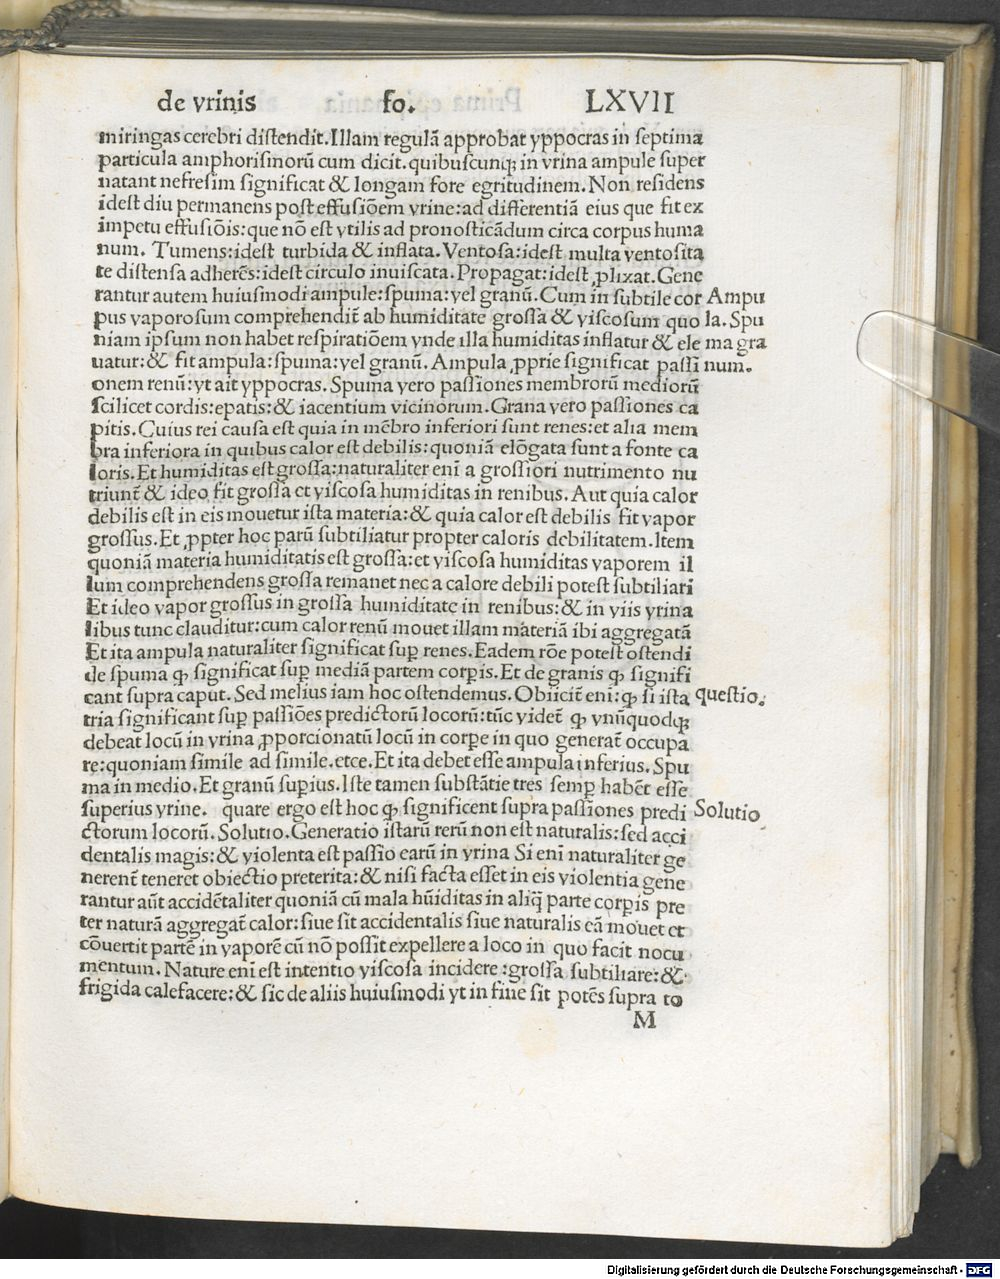 de vrinis fo. LXVII
miringas cerebri diſtendit. Illam regulā approbat yppocras in ſeptima
particula amphoriſmorū cum dicit. quibuſcunq; in vrina ampule ſuper
natant nefreſim ſignificat & longam fore egritudinem. Non reſidens
ideſt diu permanens poſt effuſiōem vrine: ad differentiā eius que fit ex
impetu effuſiōis: que nō eſt vtilis ad pronoſticādum circa corpus huma
num. Tumens: ideſt turbida & inflata. Ventoſa: ideſt multa ventoſita
te diſtenſa adherēs: ideſt circulo inuiſcata. Propagat: ideſt ꝓlixat. Gene
rantur autem huiuſmodi ampule: ſpuma: vel granū. Cum in ſubtile cor
Ampu
pus vaporoſum comprehendit̄ ab humiditate groſſa & viſcoſum quo
la. Spu
niam ipſum non habet reſpiratiōem vnde illa humiditas inflatur & ele
ma gra
uatur: & fit ampula: ſpuma: vel granū. Ampula ꝓprie ſignificat paſſi
num.
onem renū: vt ait yppocras. Spuma vero paſſiones membrorū mediorū
ſcilicet cordis: epatis: & iacentium vicinorum. Grana vero paſſiones ca
pitis. Cuius rei cauſa eſt quia in mēbro inferiori ſunt renes: et alia mem
bra inferiora in quibus calor eſt debilis: quoniā elōgata ſunt a fonte ca
loris. Et humiditas eſt groſſa: naturaliter eni̅ a groſſiori nutrimento nu
triunt̄ & ideo fit groſſa et viſcoſa humiditas in renibus. Aut quia calor
debilis eſt in eis mouetur iſta materia: & quia calor eſt debilis fit vapor
groſſus. Et ꝓpter hoc parū ſubtiliatur propter caloris debilitatem. Item
quoniā materia humiditatis eſt groſſa: et viſcoſa humiditas vaporem il
lum comprehendens groſſa remanet nec a calore debili poteſt ſubtiliari
Et ideo vapor groſſus in groſſa humiditate in renibus: & in viis vrina
libus tunc clauditur: cum calor renū mouet illam materiā ibi aggregatā
Et ita ampula naturaliter ſignificat ſuꝑ renes. Eadem rōe poteſt oſtendi
de ſpuma ꝙ ſignificat ſuꝑ mediā partem corꝑis. Et de granis ꝙ ſignifi
cant ſupra caput. Sed melius iam hoc oſtendemus. Obiicit̄ eni̅: ꝙ ſi iſta
queſtio.
tria ſignificant ſuꝑ paſſiōes predictorū locorū: tūc videt̄ ꝙ vnūquodq;
debeat locū in vrina ꝓporcionatū locū in corꝑe in quo generat̄ occupa
re: quoniam ſimile ad ſimile. etce. Et ita debet eſſe ampula inferius. Spu
ma in medio. Et granū ſuꝑius. Iſte tamen ſubſtātie tres ſemꝑ habēt eſſe
ſuperius vrine. quare ergo eſt hoc ꝙ ſignificent ſupra paſſiones predi
Solutio
ctorum locorū. Solutio. Generatio iſtarū rerū non eſt naturalis: ſed acci
dentalis magis: & violenta eſt paſſio earū in vrina Si eni̅ naturaliter ge
nerent̄ teneret obiectio preterita: & niſi facta eſſet in eis violentia gene
rantur aūt accidētaliter quoniā cū mala hūiditas in aliq̄ parte corꝑis pre
ter naturā aggregat̄ calor: ſiue ſit accidentalis ſiue naturalis eā mouet et
cōuertit partē in vaporē cū nō poſſit expellere a loco in quo facit nocu
mentum. Nature eni̅ eſt intentio viſcoſa incidere: groſſa ſubtiliare: &
frigida calefacere: & ſic de aliis huiuſmodi vt in fine ſit potēs ſupra to
M
Digitalisierung gefördert durch die Deutsche Forschungsgemeinschaft - DFG